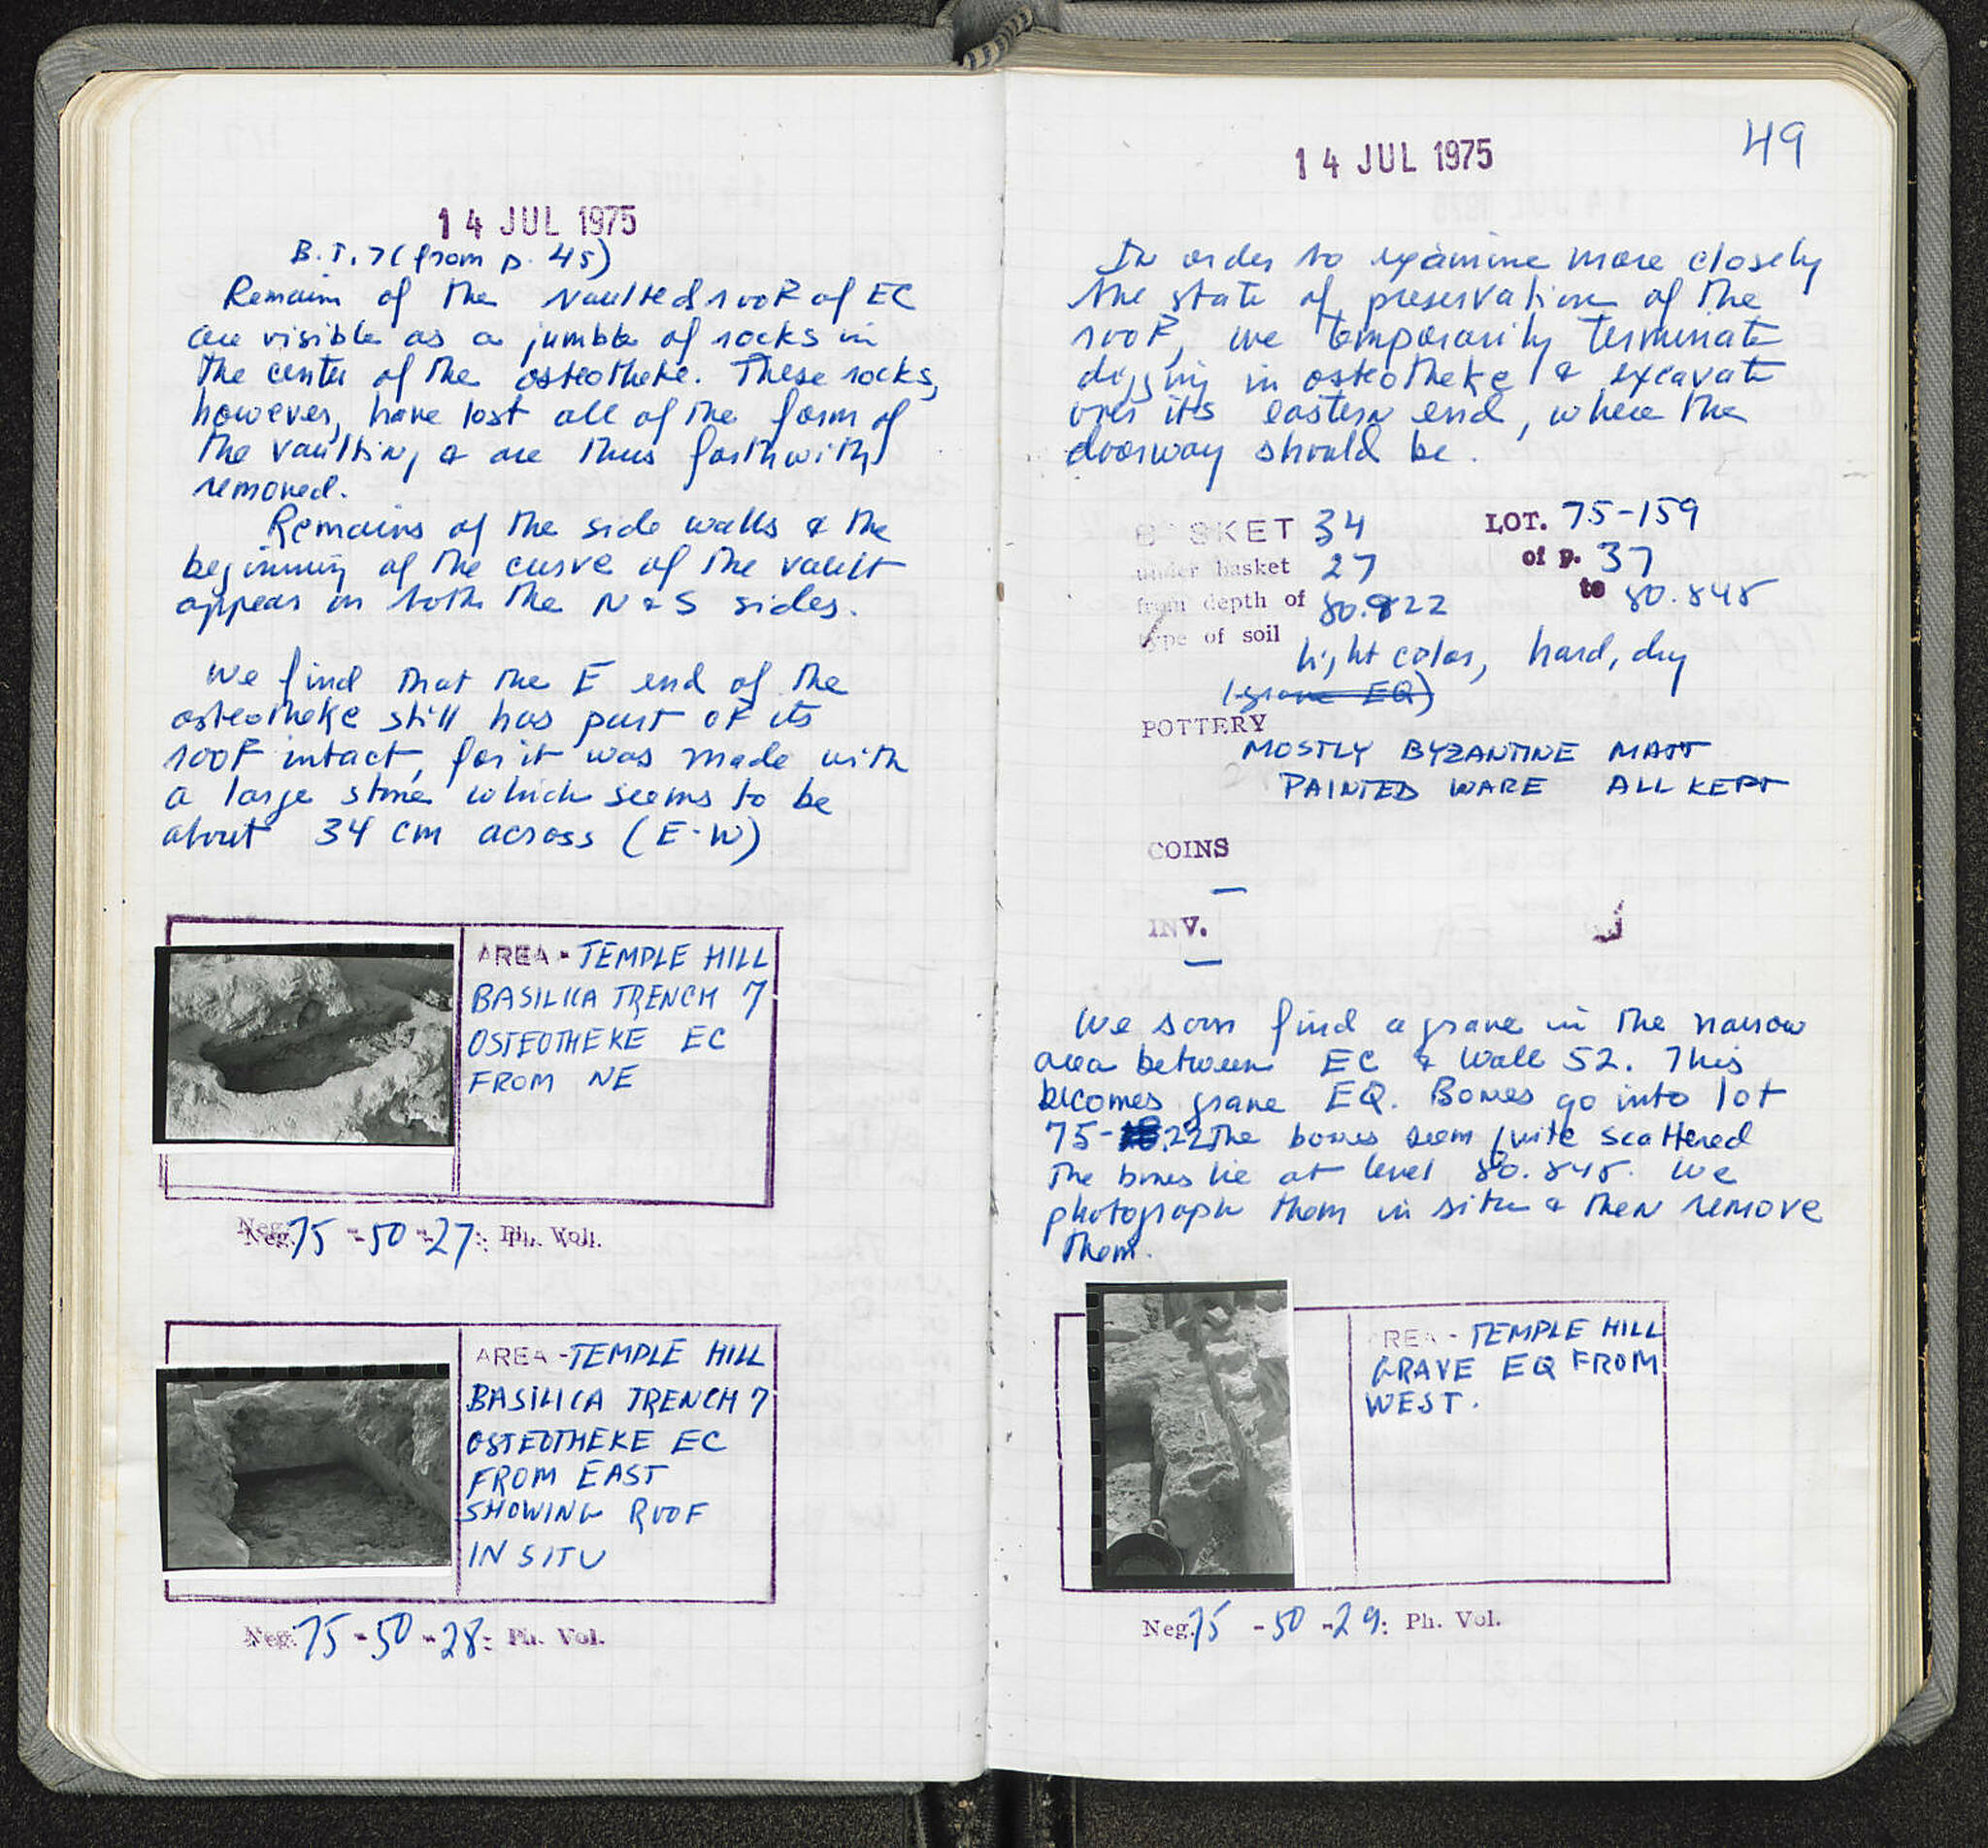 14 JUL 1975
B.T.7 (from p. 45)
Remains of the vaulted roof of EC
are visible as a jumble of rocks in
the center of the osteotheke. These rocks,
however, have lost all of the form of
the vaulting & are thus forthwith
removed.
Remains of the side walls & the
beginning of the curve of the vault
appear on both the N & S sides.
We find that the E end of the
osteotheke still has part of its
roof intact, for it was made with
a large stone which seems to be
about 34 cm across (E-W)
AREA - TEMPLE HILL
BASILICA TRENCH 7
OSTEOTHEKE EC
FROM NE
Neg. 75-50-27: Ph. Vol.
AREA - TEMPLE HILL
BASILICA TRENCH 7
OSTEOTHEKE EC
FROM EAST
SHOWING ROOF
IN SITU
Neg. 75-50-28: Ph. Vol.
49
14 JUL 1975
In order to examine more closely
the state of preservation of the
roof, we temporarily terminate
digging in osteotheke & excavate
over its eastern end, where the
doorway should be.
BASKET 34 LOT. 75-159
under basket 27 of p. 37
from depth of 80.922 to 80.848
type of soil
light color, hard, dry
(grave EQ)
POTTERY
MOSTLY BYZANTINE MATT
PAINTED WARE ALL KEPT
COINS
—
INV.
—
We soon find a grave in the narrow
area between EC & Wall 52. This
becomes grave EQ. Bones go into lot
75-22 The bones seem quite scattered
The bones lie at level 80.848. We
photograph them in situ & then remove
them.
AREA - TEMPLE HILL
GRAVE EQ FROM
WEST.
Neg. 75-50-29: Ph. Vol.